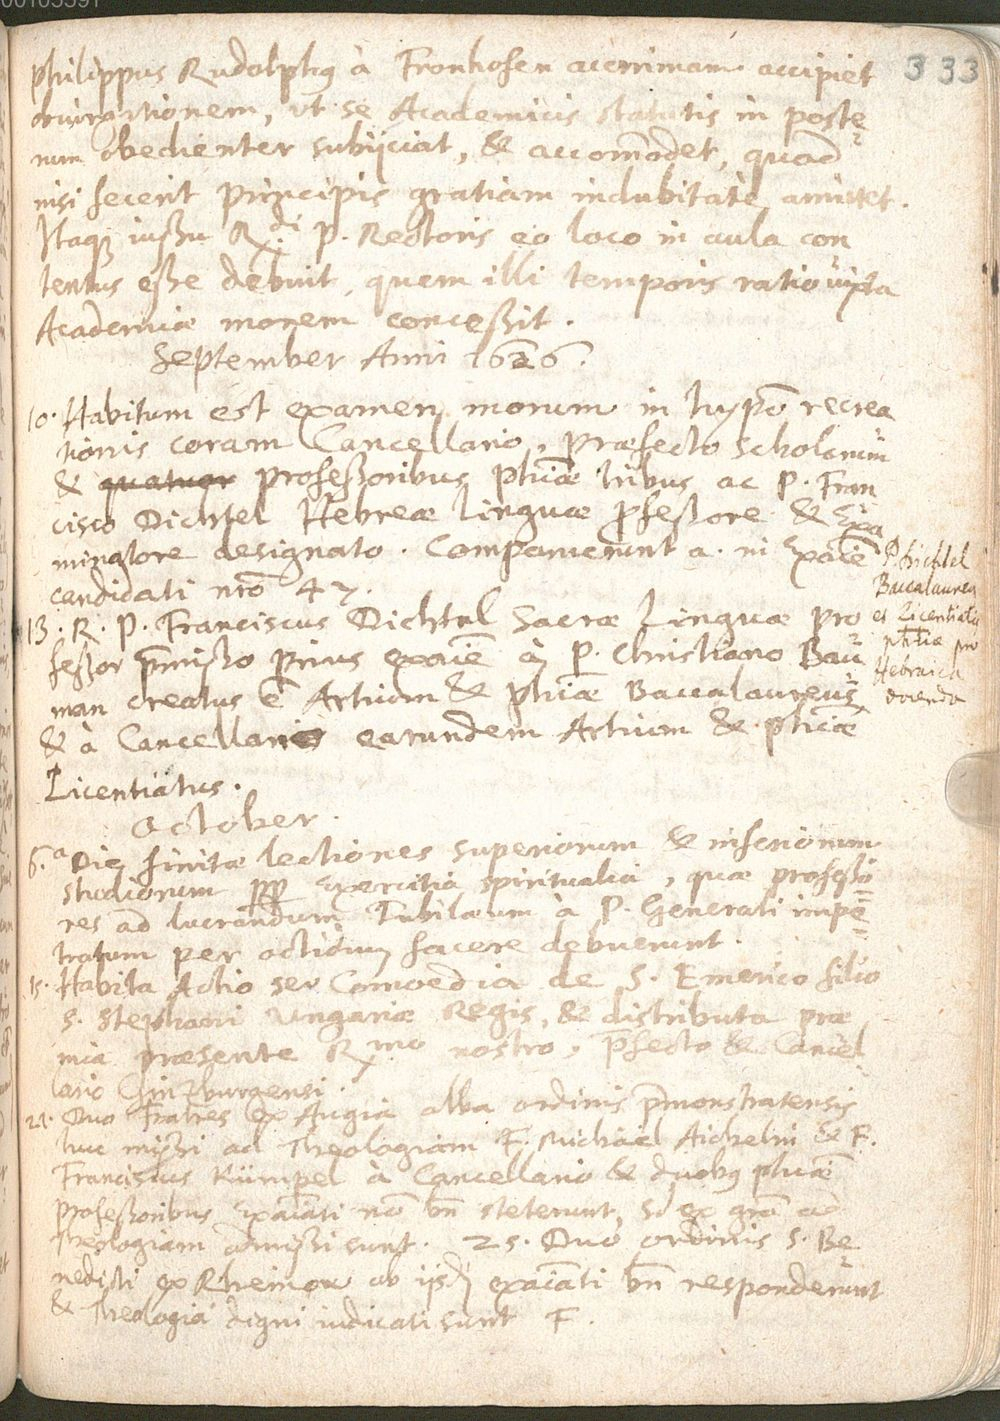 333
Philippus Rudolphus à Fronhofen acerrimam accipiet
obiurgationem, ut se Academicis statutis in poste
rum obedienter subijciat, & accom̄odet, quod
nisi fecerit Principis gratiam indubitatè amittet.
Itaq; iussu R.di P. Rectoris eo loco in aula con
tentus esse debuit, quem illi temporis ratio iuxta
Academiæ morem concessit.
September Anni 1626.
10. Habitum est examen morum in hypō recrea
tionis coram Cancellario, præfecto scholarum
& quatuor professoribus phiæ tribus ac P. Fran
cisco Dichtel Hebreæ linguæ p̄fessore & Exa
minatore designato. Comparuerunt a. in Exāīe
candidati nrō 47.
P. Dichtel
Baccalaureus
et Licentiatus
phiæ pro
Hebraica
docenda
13. R. P. Franciscus Dichtel Sacræ Linguæ pro
fessor p̄misso prius exāīe à P. Christiano Bau
man creatus ē Artium & phiæ Baccalaureus
& à Cancellario earundem Artium & phiæ
Licentiatus.
October.
6.a Die finitæ lectiones superiorum & inferiorum
studiorum pp Exercitia spiritualia, quæ professo
res ad lucrandum Iubilæum à P. Generali impe
tratum per octiduum facere debuerunt.
15. Habita Actio seu Comoedia de S. Emerico filio
S. Stephani Ungariæ Regis, & distributa præ
mia præsente R.mo nostro, p̄fecto & Cancel
lario Ginzburgensi.
22. Duo Fratres ex Augia alba ordinis p̄monstratensis
huc missi ad Theologiam F. Michael Aichelin & F.
Franciscus Kümpel à Cancellario & duobus phiæ
professoribus Exāīati nō bn̄ steterunt, sd ex grā ad
Theologiam admissi sunt. 25. Duo ordinis S. Be
nedicti ex Rheinow ab ijsd exāīati bn̄ responderunt
& Theologiâ digni iudicati sunt F.